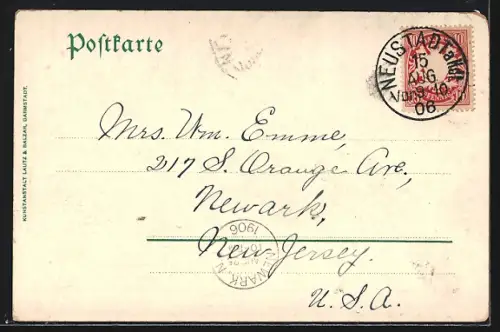 Postkarte
NEUSTADT a/Hdt.
15
AUG
Vor. 9-10
06
KUNSTANSTALT LAUTZ & BALZAR, DARMSTADT.
Mrs. Wm. Emme,
217 S. Orange Ave,
Newark,
New Jersey.
U.S.A.
NEWARK, N.
1906